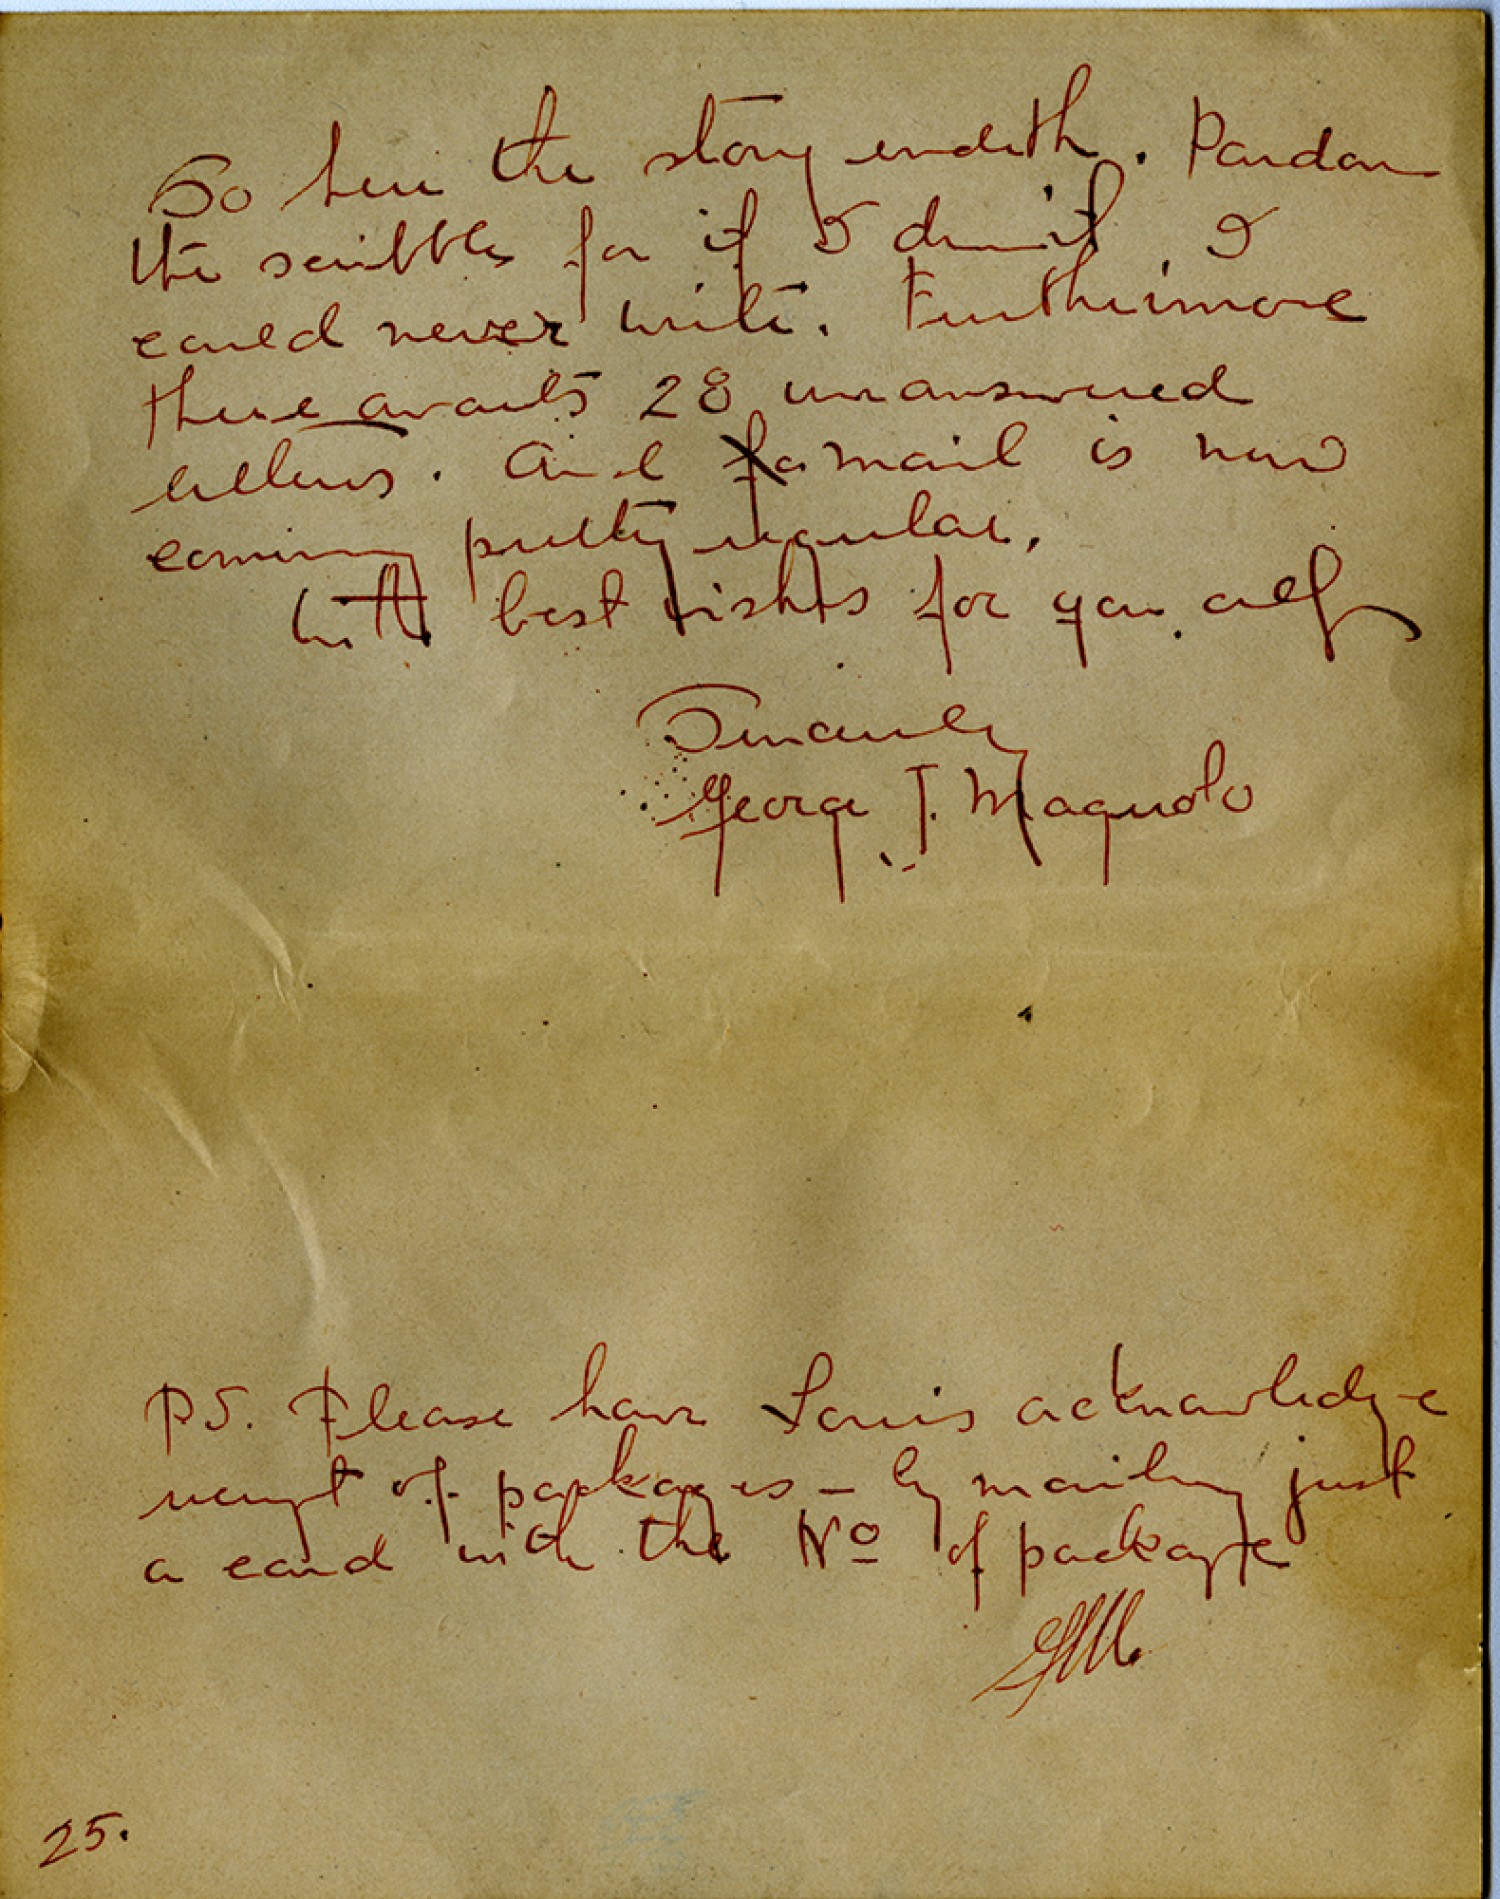 So here the story endeth. Pardon
the scribble for if I drew it, I
could never write. Furthermore
there awaits 28 unanswered
letters. And mail is now
coming pretty regular.
With best wishes for you all
Sincerely
George J. Magnolo
PS. Please have Louis acknowledge
receipt of packages - by mailing just
a card with the Nº of package
GJM.
25.